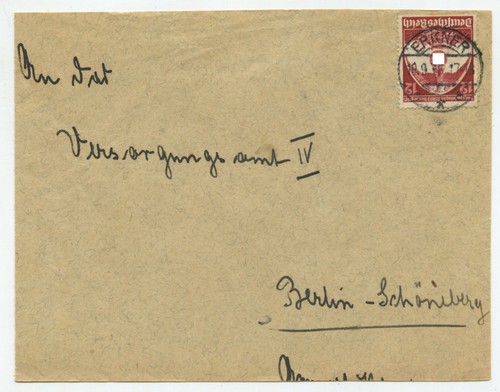 An das
Versorgungsamt IV
Berlin-Schöneberg
Deutsches Reich
12 12
ERKNER